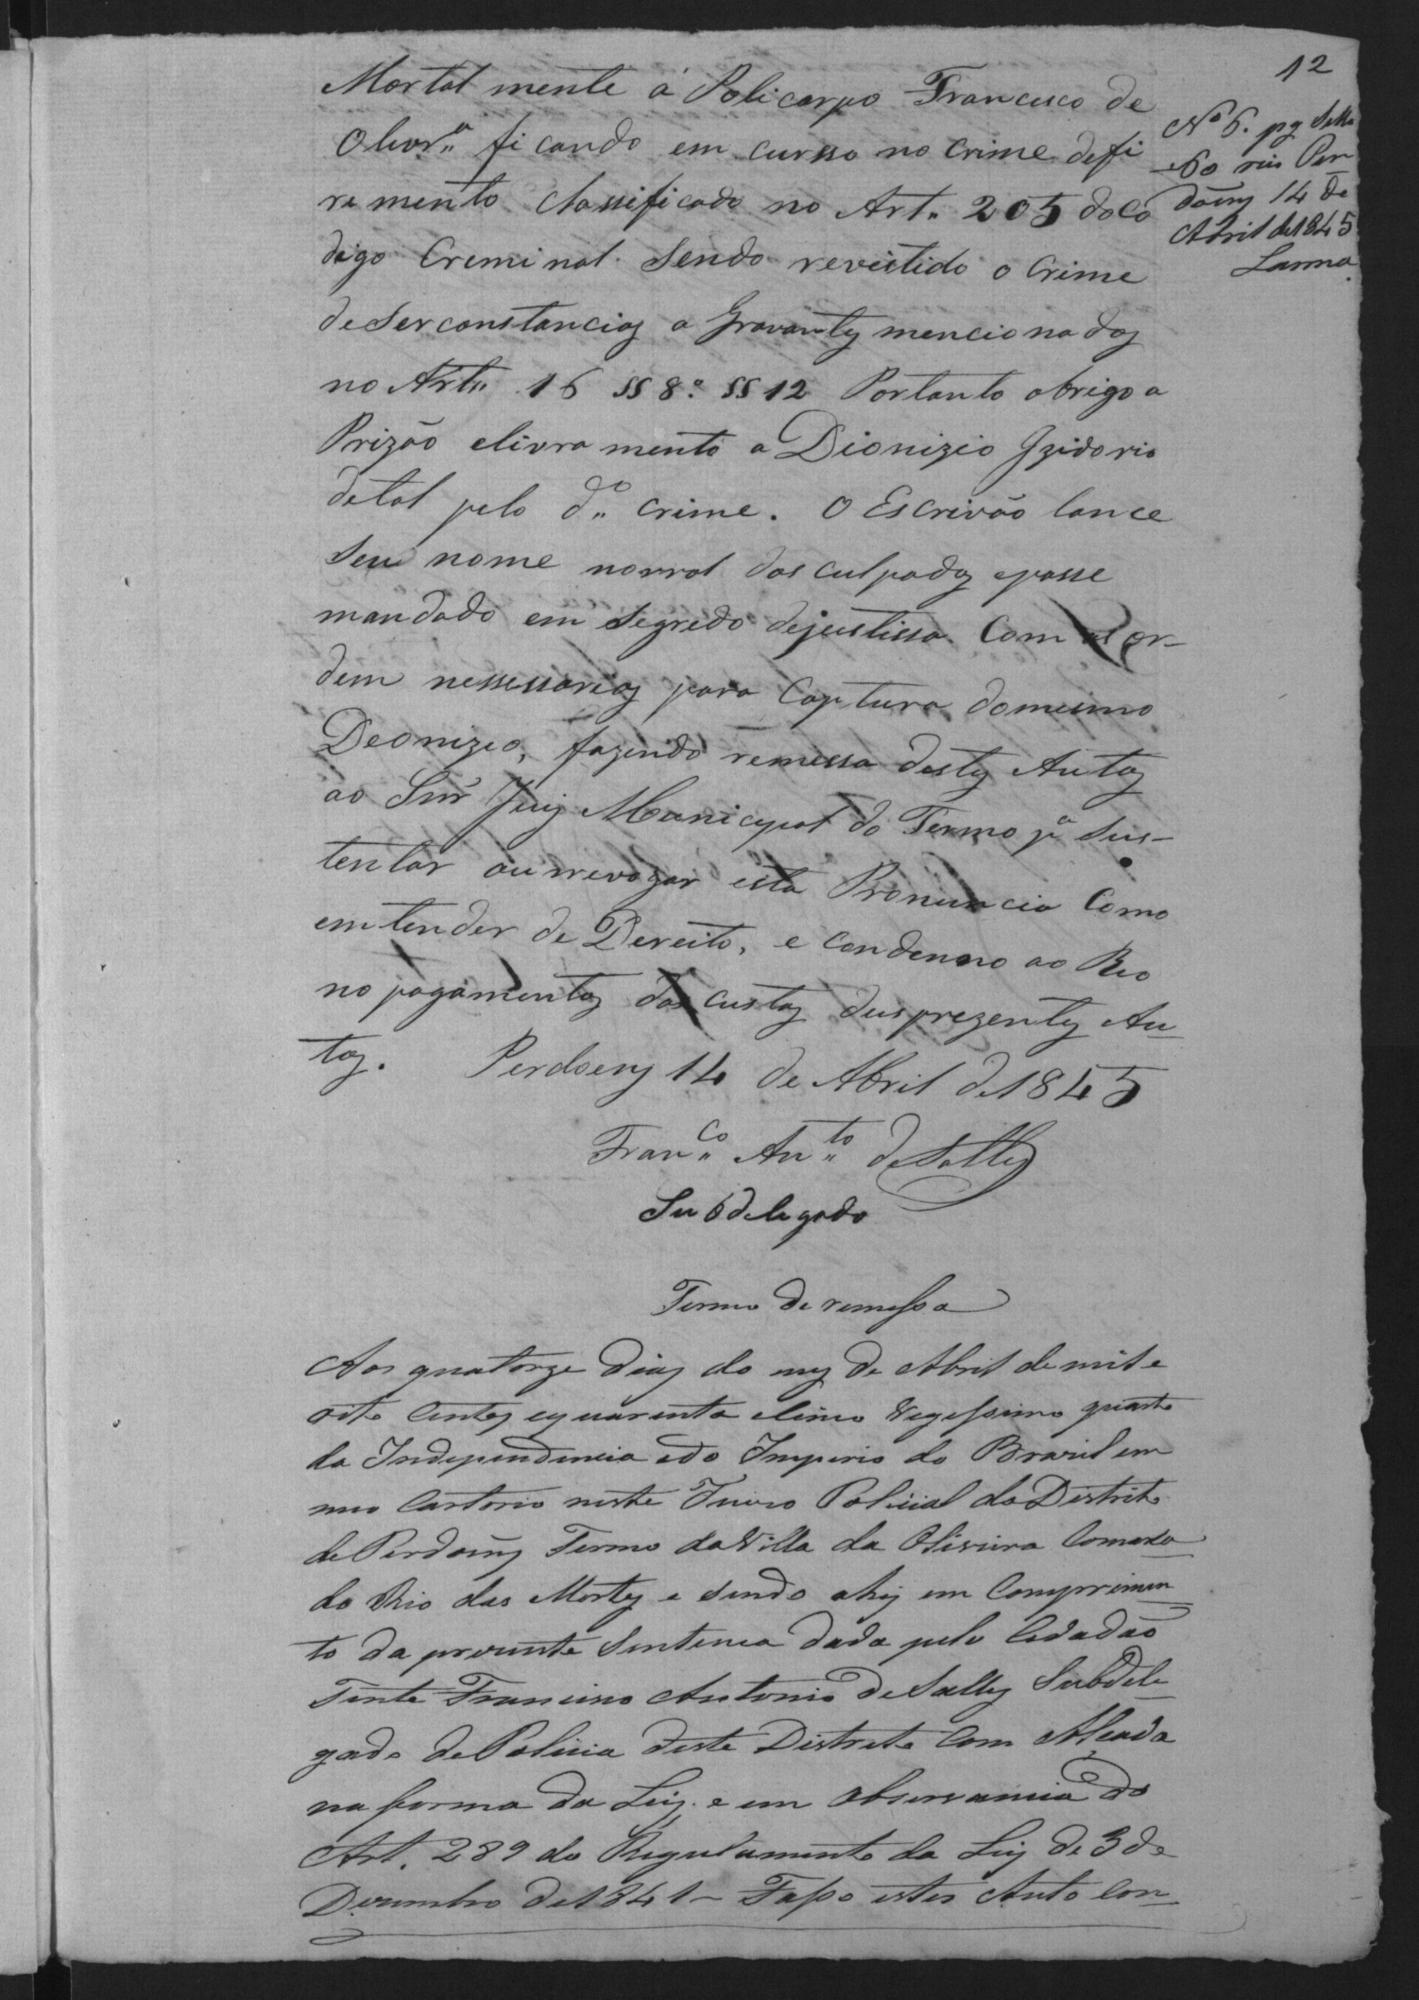 12
Nº 6. pg Sello
60 reis Per
doẽns 14 de
Abril de 1845
Lanna.
Mortal mente á Policarpo Francisco de
Olivrª ficando em cursso no crime de fi
remento classificado no Art. 205 do Co
digo Creminal. Sendo revistido o Crime
de Serconstancias a Gravantes mencionadas
no Art. 16 §§ 8.º §§ 12 Portanto obrigo a
Prizão elivramento a Dionizio Izidorio
de tal pelo d.º crime. O Escrivão lance
Seu nome norrol dos culpados epasse
mandado em segredo dejustissa Com as or-
dem nessessarias para Captura domesmo
Deonizeo, fazendo remessa destes Autos
ao Snr. Juiz Municipal do Termo pª Sus-
tentar ou rrevogar esta Pronuncia Como
emtender de Dereito, e condenno ao Reo
no pagamentos das custas dus prezentes Au-
tos. Perdoens 14 de Abril de 1845
Franco Anto de Salles
Subdelegado
Termo de remessa
Aos quatorze dias do mes de Abril de mil e
oito Centos equarenta elinco Vegessimo quarto
da Independencia edo Imperio do Brazil em
meo Cartorio neste Juizo Policial do Distrito
de Perdoẽns Termo da Villa da Oliveira Comarca
do Rio das Mortes e sendo ahy em Comprimen
to da prezente Sentenca dada pelo Cidadão
Tente Francisco Antonio de Salles Subdele
gado de Policia deste Distrito Com Alcada
na forma da Ley. e em observancia do
Art. 289 do Regulamento da Ley de 3 de
Dezembro de 1841 - Fasso estes Auto Con-